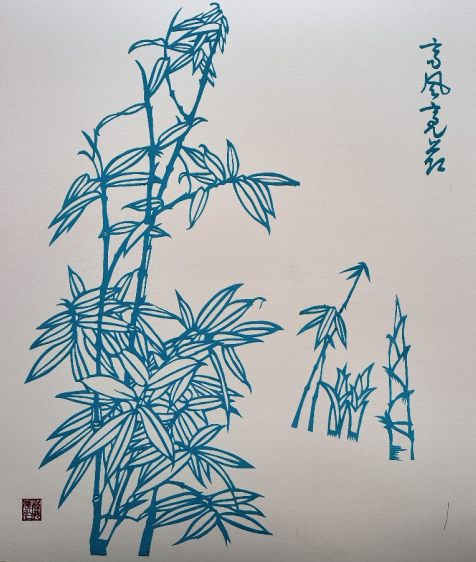 高风亮节